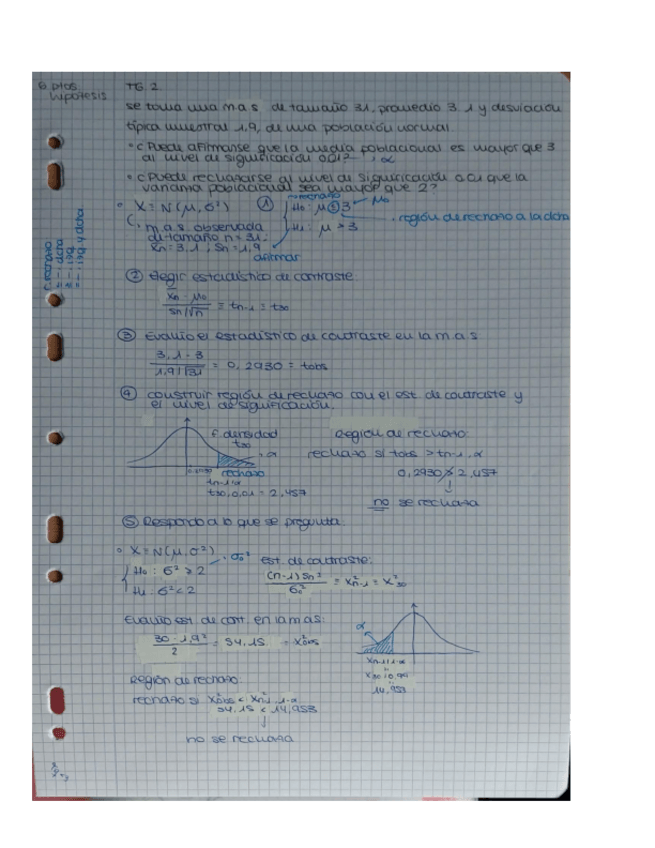 6 ptos. hipótesis
TG 2
se toma una m a s de tamaño 31, promedio 3.1 y desviación
típica muestral 1,9, de una población normal.
• ¿Puede afirmarse que la media poblacional es mayor que 3
al nivel de significación 0,01? , α
• ¿Puede rechazarse al nivel de significación 0,01 que la
varianza poblacional sea mayor que 2?
rechazo
• X ≡ N(μ, σ²) ① H₀: μ ≤ 3 μ₀
región de rechazo a la dcha
m a s observada H₁: μ > 3
de tamaño n = 31.
x̄n = 3,1, Sn = 1,9
afirmar
② Elegir estadístico de contraste
x̄n - μ₀
sn/√n ≡ tn-1 ≡ t30
③ Evalúo el estadístico de contraste en la m a s
3,1 - 3
1,9/√31 = 0,2930 = tobs
④ construir región de rechazo con el est. de contraste y
el nivel de significación.
f densidad
t30
Región de rechazo:
α
rechazo si tobs > tn-1,α
0,2930 rechazo
0,2930 ≯ 2,457
tn-1,α
↓
t30,0,01 = 2,457
no se rechaza
⑤ Respondo a lo que se pregunta.
• X ≡ N(μ, σ²) σ₀²
est. de contraste:
H₀: σ² ≥ 2
(n-1) Sn²
σ₀² ≡ χ²n-1 ≡ χ²30
H₁: σ² < 2
Evalúo est de cont. en la m a s:
30 · 1,9²
2 = 54,15 = χ²obs
α
χn-1,1-α
χ30,0,99
14,953
Región de rechazo:
rechazo si χ²obs < χ²n-1,1-α
54,15 < 14,953
↓
no se rechaza